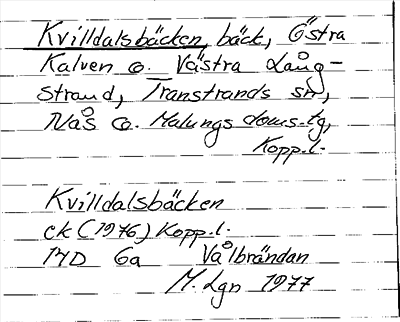 Kvilldalsbäcken, bäck, Östra
Kalven o. Västra Lång-
strand, Transtrands sn,
Nås o. Malungs doms-tg,
Kopp.l.
Kvilldalsbäcken
ck (1976) Kopp.l.
14D 6a Vålbrändan
M. Lgn 1977